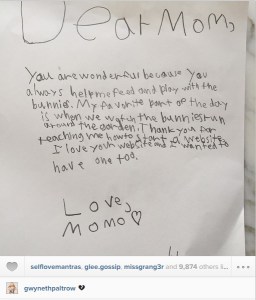 Dear Mom,
You are wonderful because you
always help me feed and play with the
bunnies. My favorite part of the day
is when we watch the bunnies run
around the garden. Thank you for
teaching me how to start a website.
I love your website and I wanted to
have one too.
Love,
Momo♡
selflovemantras, glee.gossip, missgrang3r and 9,674 others li...
gwynethpaltrow 💔